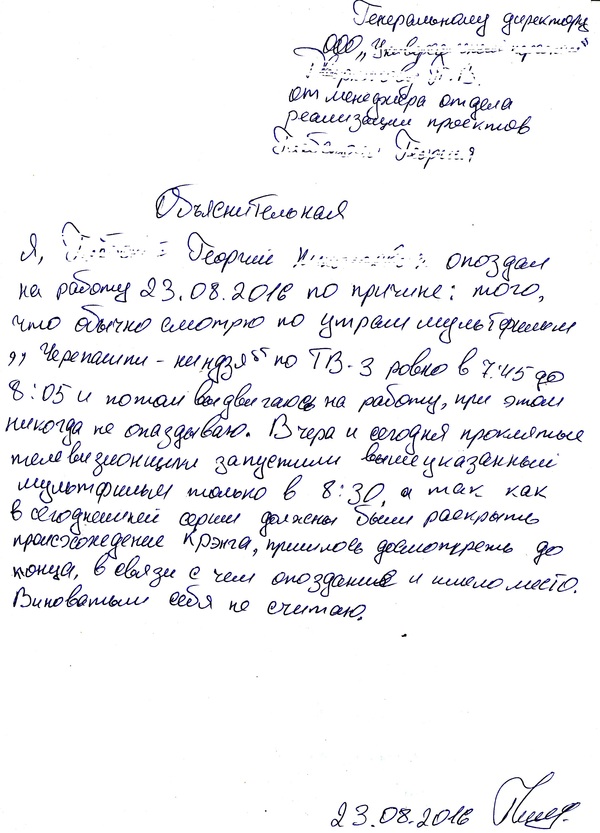 Генеральному директору
ООО „
от менеджера отдела
реализации проектов
Георгия
Объяснительная
Я, Георгий опоздал
на работу 23.08.2016 по причине: того,
что обычно смотрю по утрам мультфильм
„Черепашки-ниндзя“ по ТВ-3 ровно в 7:45 до
8:05 и потом выдвигаюсь на работу, при этом
никогда не опаздываю. Вчера и сегодня проклятые
телевизионщики запустили вышеуказанный
мультфильм только в 8:30, а так как
в сегодняшней серии должны были раскрыть
происхождение Крэнга, пришлось досмотреть до
конца, в связи с чем опоздание и имело место.
Виноватым себя не считаю.
23.08.2016